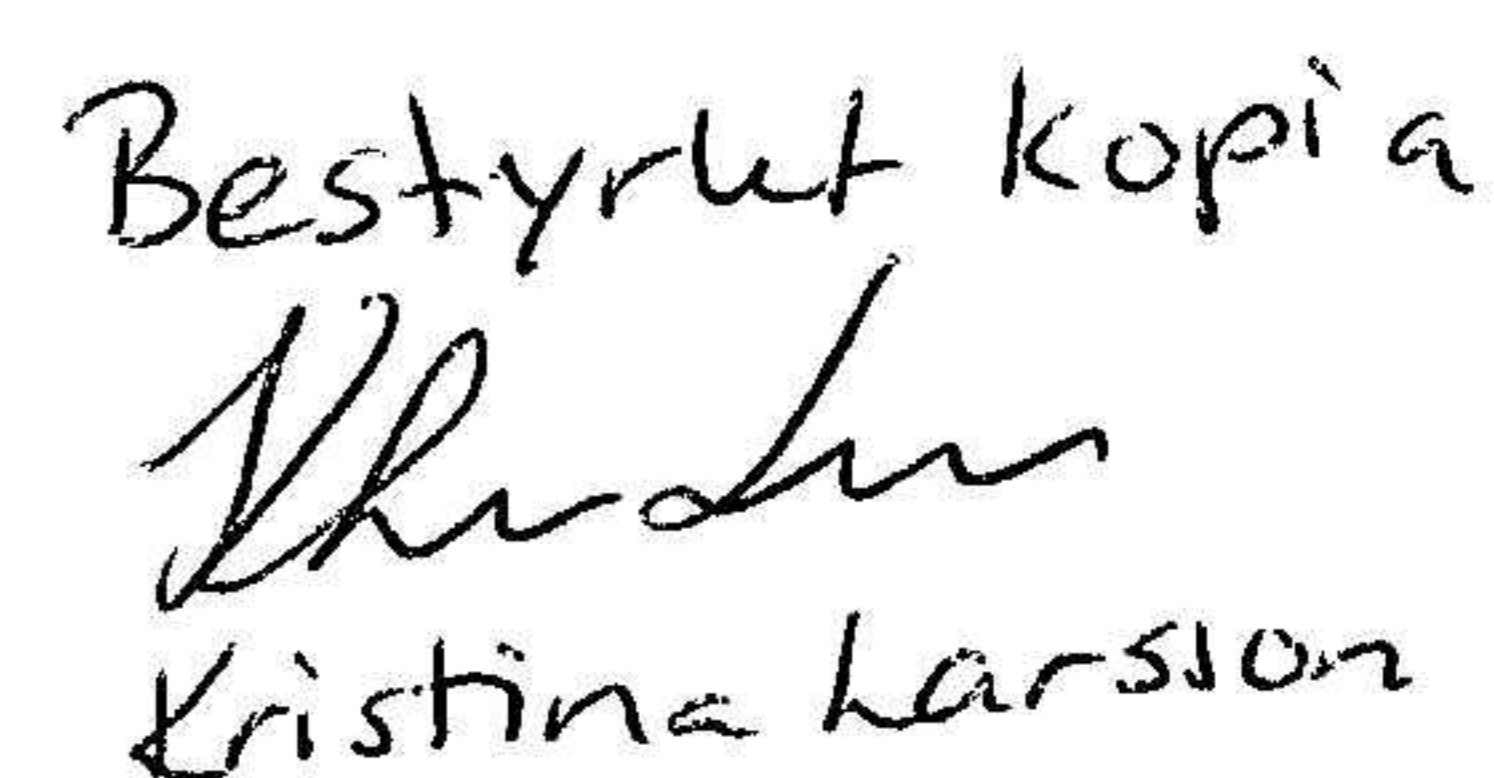 Bestyrkt kopia
Kristina Larsson